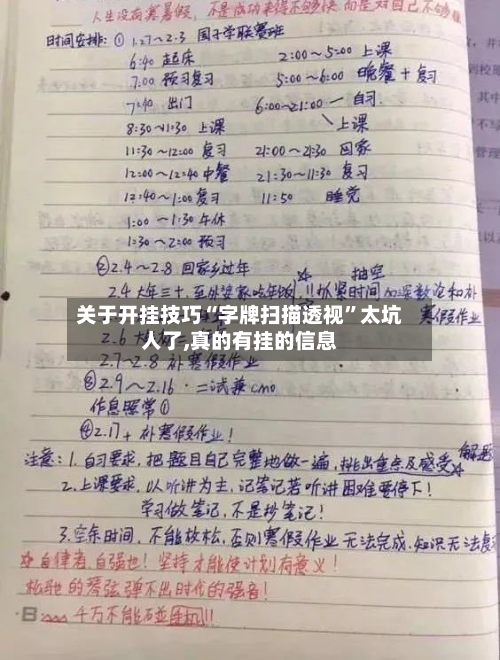 人生没有寒暑假，不是成功来得不够快 而是对自己不够狠
时间安排：① 1.27~2.3 国子学联赛班
6:40 起床 2:00~5:00 上课
7:00 预习复习 5:00~6:00 晚餐+复习
7:40 出门 6:00~21:00 自习
上课
8:30~11:30 上课
11:30~12:00 复习 21:00~21:30 回家
12:00~12:40 中餐 21:30~11:30 复习
12:40~1:00 复习 11:50 睡觉
1:00~1:30 午休
1:30~2:00 预习
②2.4~2.8 回家乡过年 抽空
2.4 大年三十，至外婆家吃年饭 !!抓紧时间
和补
寒假作业
关于开挂技巧“字牌扫描透视”太坑
人了,真的有挂的信息
2.6 大
2.7~2.8 补寒假作业
③2.9~2.16·二试兼cmo
作息照常①
④2.17+ 补寒假作业！
注意：1.自习要求，把题目自己完整地做一遍，挑出重点及感受 解题
2.上课要求，以听讲为主，记笔记若听讲困难要停下！
学习做笔记，不是抄笔记！
3.空余时间，不能放松，否则寒假作业无法完成，知识无法复
自律者，自强也！坚持才能使计划有意义！
松弛的琴弦弹不出时代的强音！
千万不能碰手机!!!